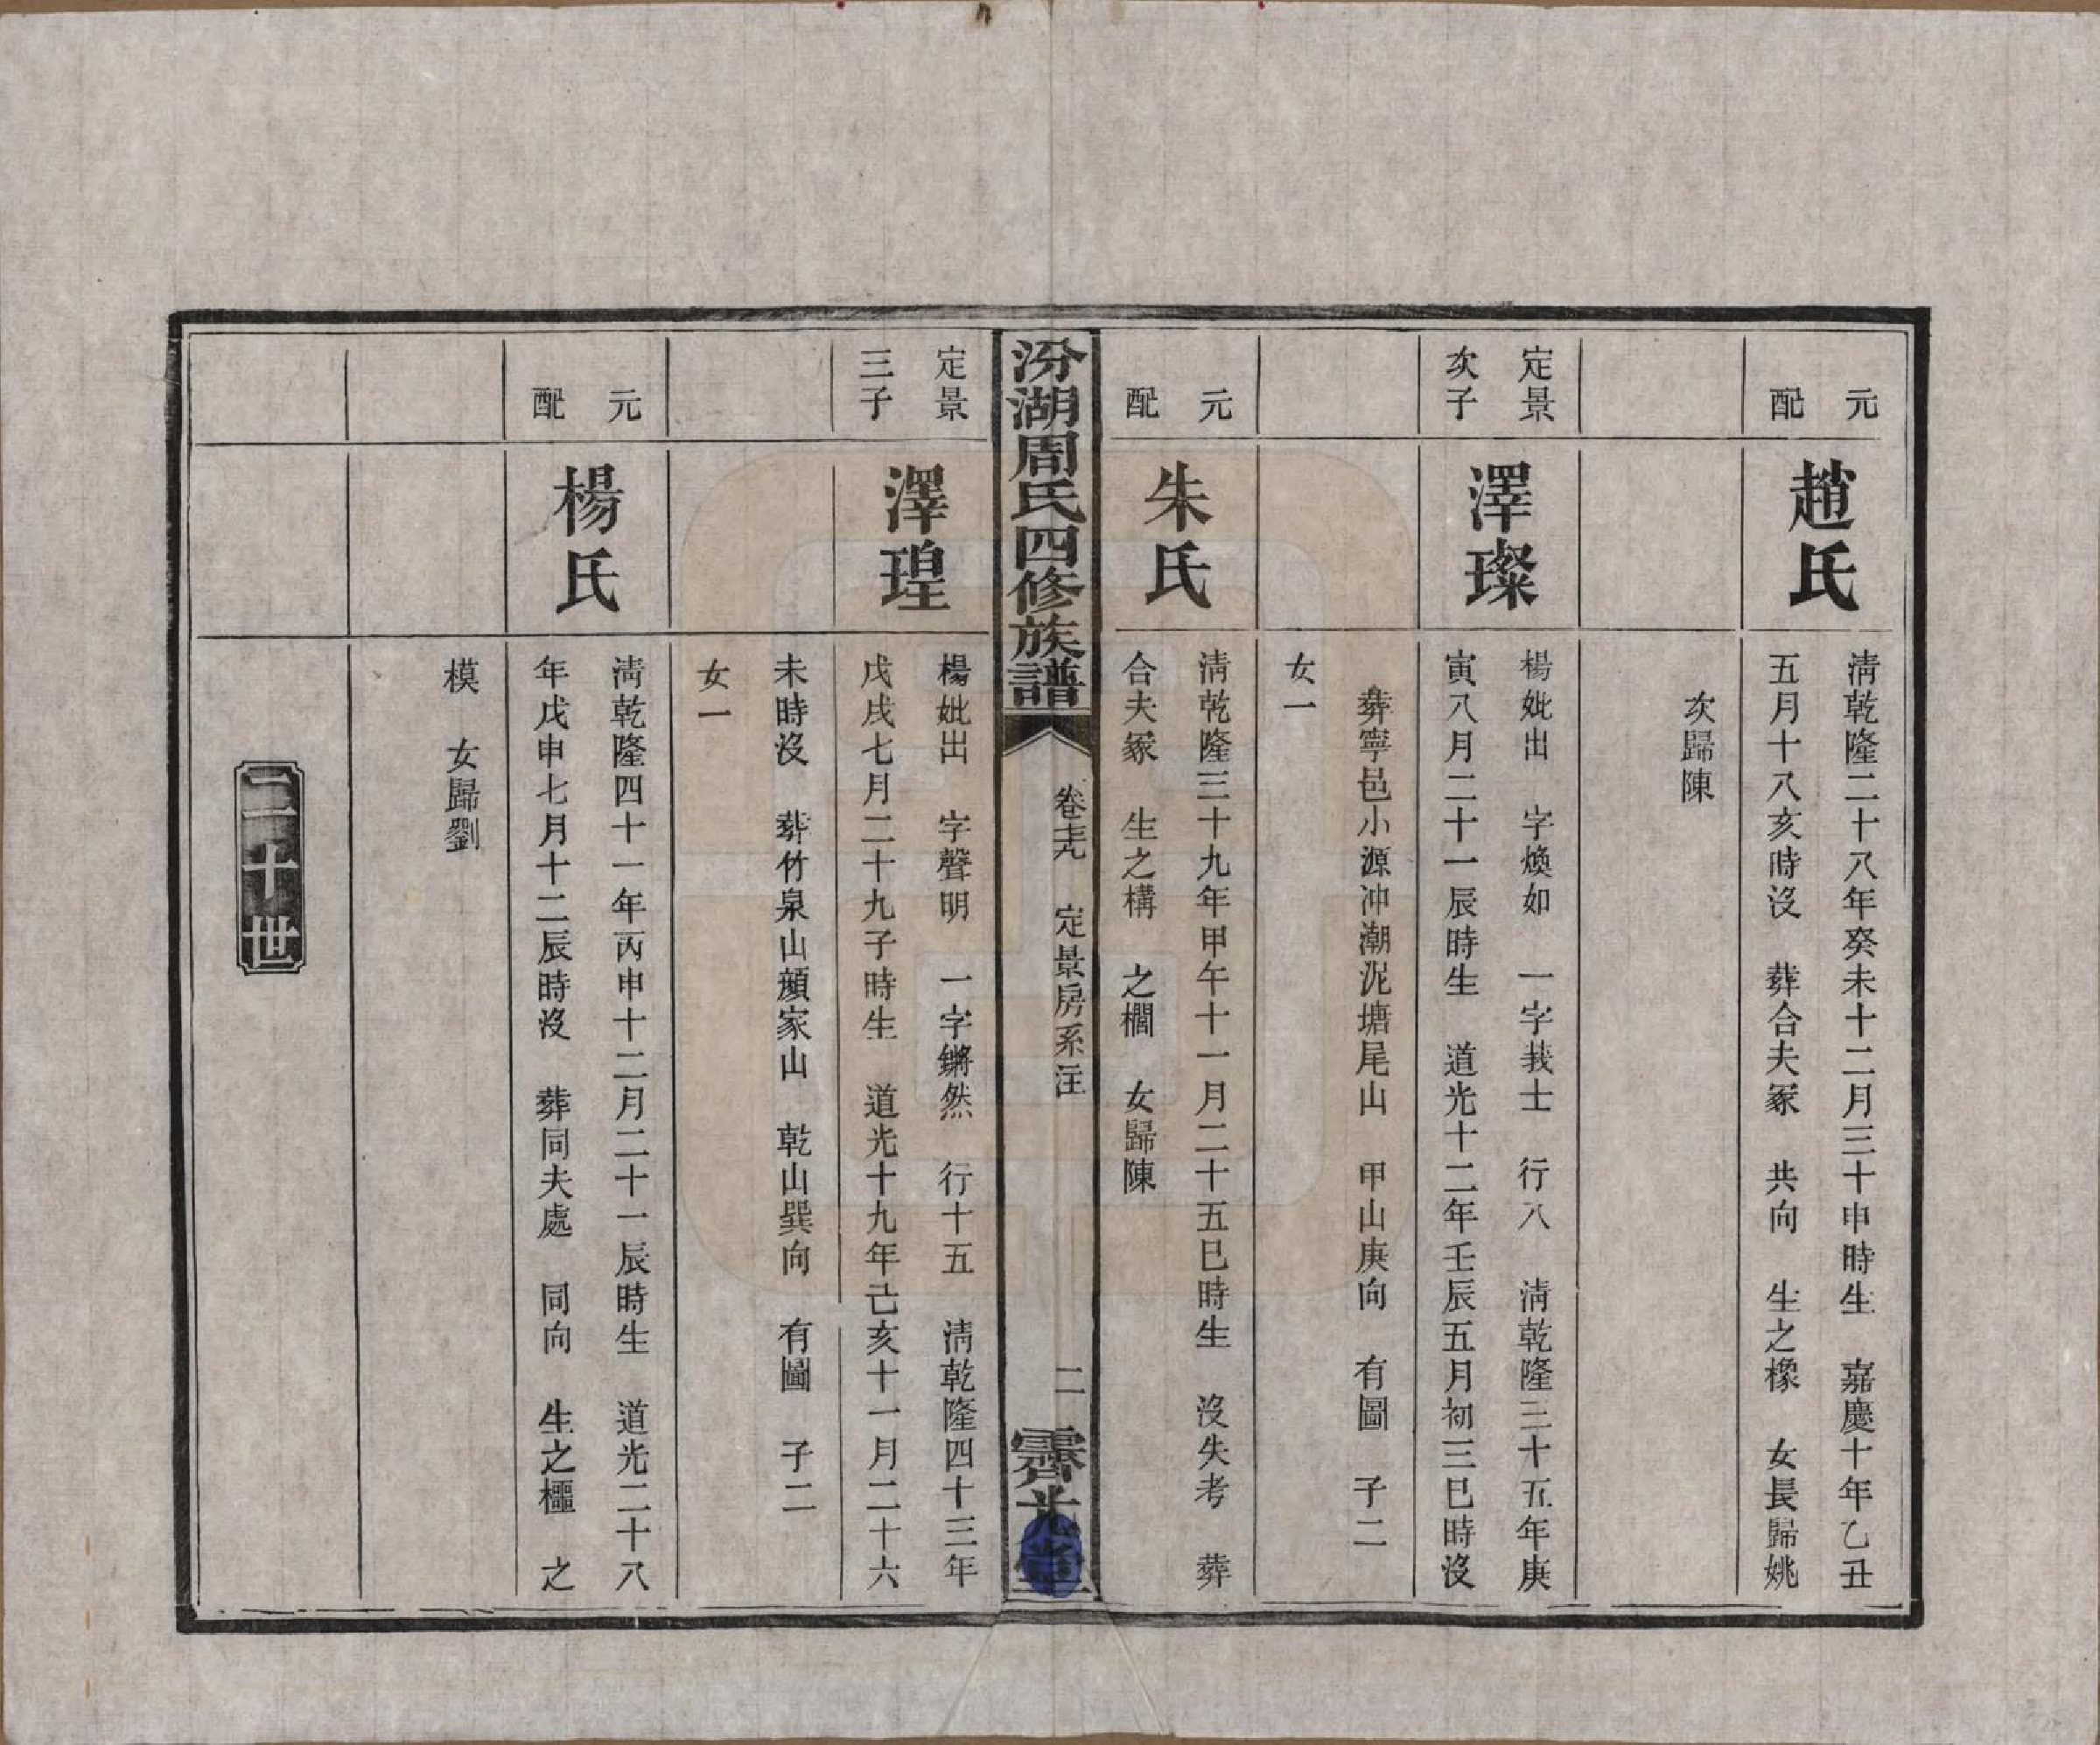 元
配
趙氏
清乾隆二十八年癸未十二月三十申時生　嘉慶十年乙丑
五月十八亥時沒　葬合夫冢　共向　生之橡　女長歸姚
次歸陳
定景
次子
澤璨
楊妣出　字煥如　一字莪士　行八　清乾隆三十五年庚
寅八月二十一辰時生　道光十二年壬辰五月初三巳時沒
葬寧邑小源冲潮泥塘尾山　甲山庚向　有圖　子二
女一
元
配
朱氏
清乾隆三十九年甲午十一月二十五巳時生　沒失考　葬
合夫冢　生之構　之櫩　女歸陳
汾湖周氏四修族譜
卷　定景房系注
二
霽光堂
定景
三子
澤瑝
楊妣出　字聲明　一字鏘然　行十五　清乾隆四十三年
戊戌七月二十九子時生　道光十九年己亥十一月二十六
未時沒　葬竹泉山顏家山　乾山巽向　有圖　子二
女一
元
配
楊氏
清乾隆四十一年丙申十二月二十一辰時生　道光二十八
年戊申七月十二辰時沒　葬同夫處　同向　生之櫃　之
模　女歸劉
二十世